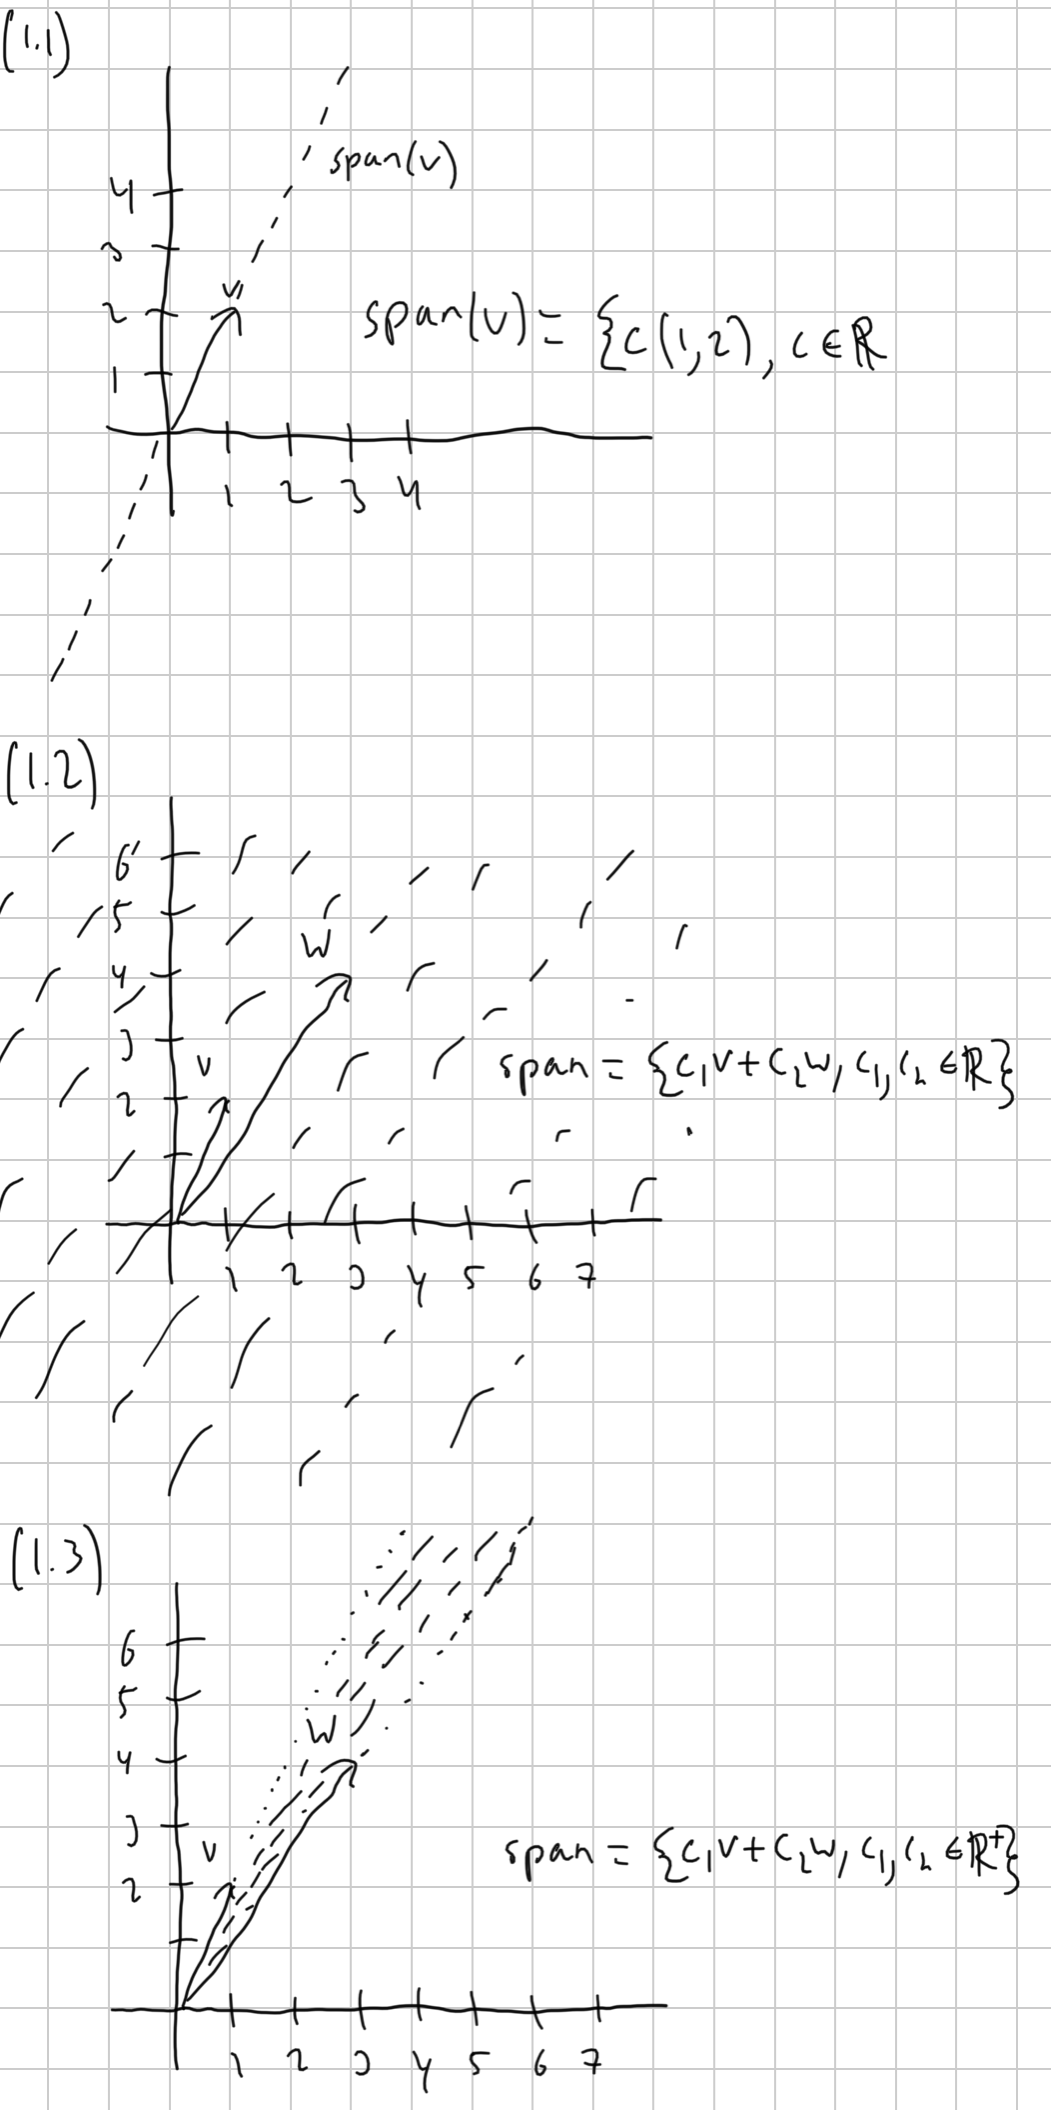 (1.1)
span(v)
4
3
v
2
span(v) = {c(1,2), c∈ℝ
1
1 2 3 4
(1.2)
6
5
W
4
3
v
span = {c₁v + c₂w, c₁, c₂ ∈ℝ}
2
1 2 3 4 5 6 7
(1.3)
6
5
W
4
3
v
span = {c₁v + c₂w, c₁, c₂ ∈ℝ⁺}
2
1 2 3 4 5 6 7